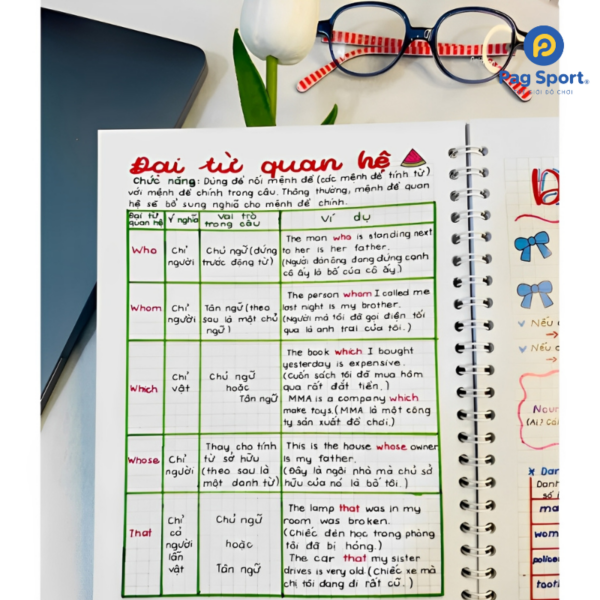 Pag Sport®
Đại từ quan hệ
Chức năng: Dùng để nối mệnh đề (các mệnh đề tính từ)
với mệnh đề chính trong câu. Thông thường, mệnh đề quan
hệ sẽ bổ sung nghĩa cho mệnh đề chính.
Đại từ quan hệ
Ý nghĩa
Vai trò trong câu
Ví dụ
Who
Chỉ người
Chủ ngữ (đứng
trước động từ)
The man who is standing next
to her is her father.
(Người đàn ông đang đứng cạnh
cô ấy là bố của cô ấy.)
Whom
Chỉ người
Tân ngữ (theo
sau là một chủ
ngữ)
The person whom I called me
last night is my brother.
(Người mà tôi đã gọi điện tối
qua là anh trai của tôi.)
Which
Chỉ vật
Chủ ngữ
hoặc
Tân ngữ
The book which I bought
yesterday is expensive.
(Cuốn sách tôi đã mua hôm
qua rất đắt tiền.)
MMA is a company which
make toys. (MMA là một công
ty sản xuất đồ chơi.)
Whose
Chỉ người
Thay cho tính
từ sở hữu
(theo sau là
một danh từ)
This is the house whose owner
is my father.
(Đây là ngôi nhà mà chủ sở
hữu của nó là bố tôi.)
That
Chỉ cả người lẫn vật
Chủ ngữ
hoặc
Tân ngữ
The lamp that was in my
room was broken.
(Chiếc đèn học trong phòng
tôi đã bị hỏng.)
The car that my sister
drives is very old (Chiếc xe mà
chị tôi đang đi rất cũ.)
Nếu
Nếu
Noun
(Ai? Cái
Dan
Danh
số í
ma
wom
police
toot